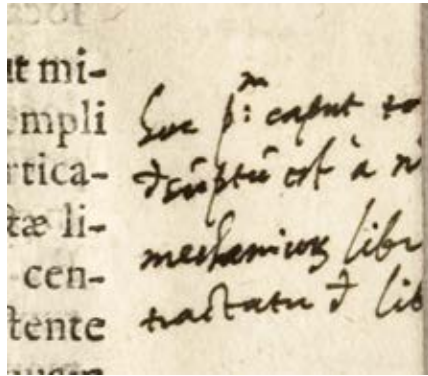 ut mi-
empli
rtica-
tæ li-
cen-
tente
hoc p:m caput to
dscriptū est à n
mechanicoꝝ libr
tractatu d lib